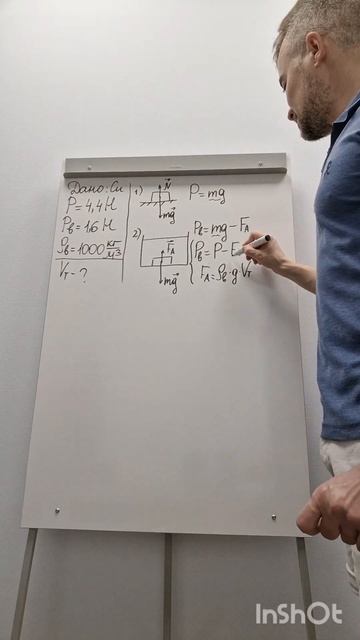 Дано: Си
P = 4,4 Н
Pв = 1,6 Н
ρв = 1000 кг/м³
Vт - ?
1) N
mg
P = mg
2) FA
mg
Pв = mg - FA
Pв = P - F
FA = ρв · g · Vт
InShOt